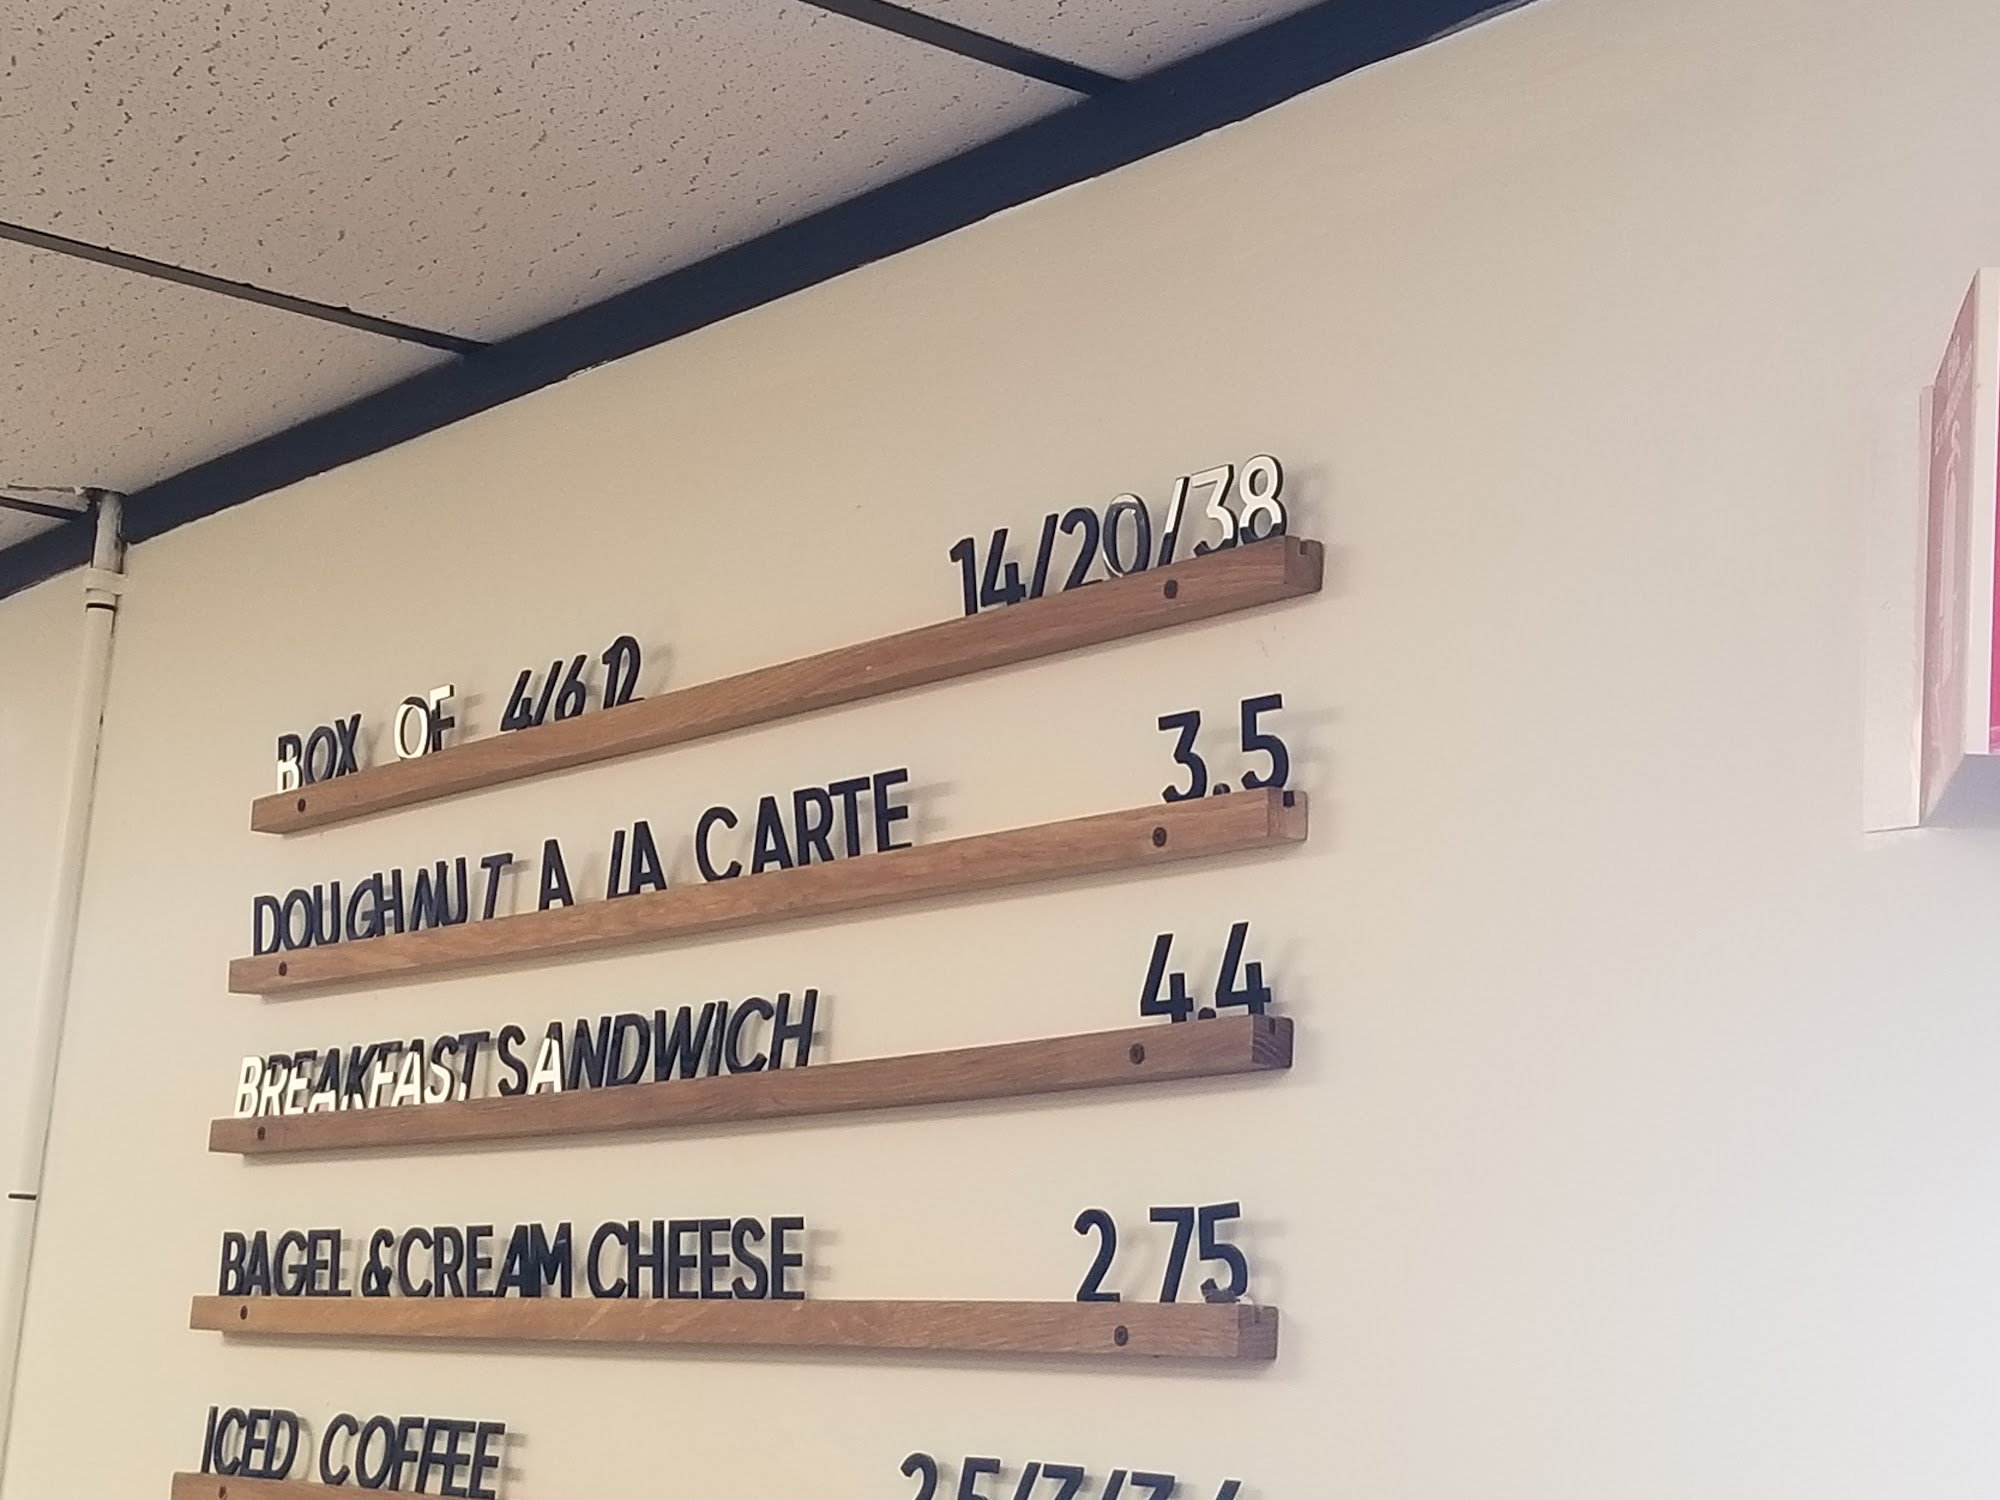 BOX OF 4/6 12 14/20/38
DOUGHNUT A LA CARTE 3.5
BREAKFAST SANDWICH 4.4
BAGEL & CREAM CHEESE 2 75
ICED COFFEE